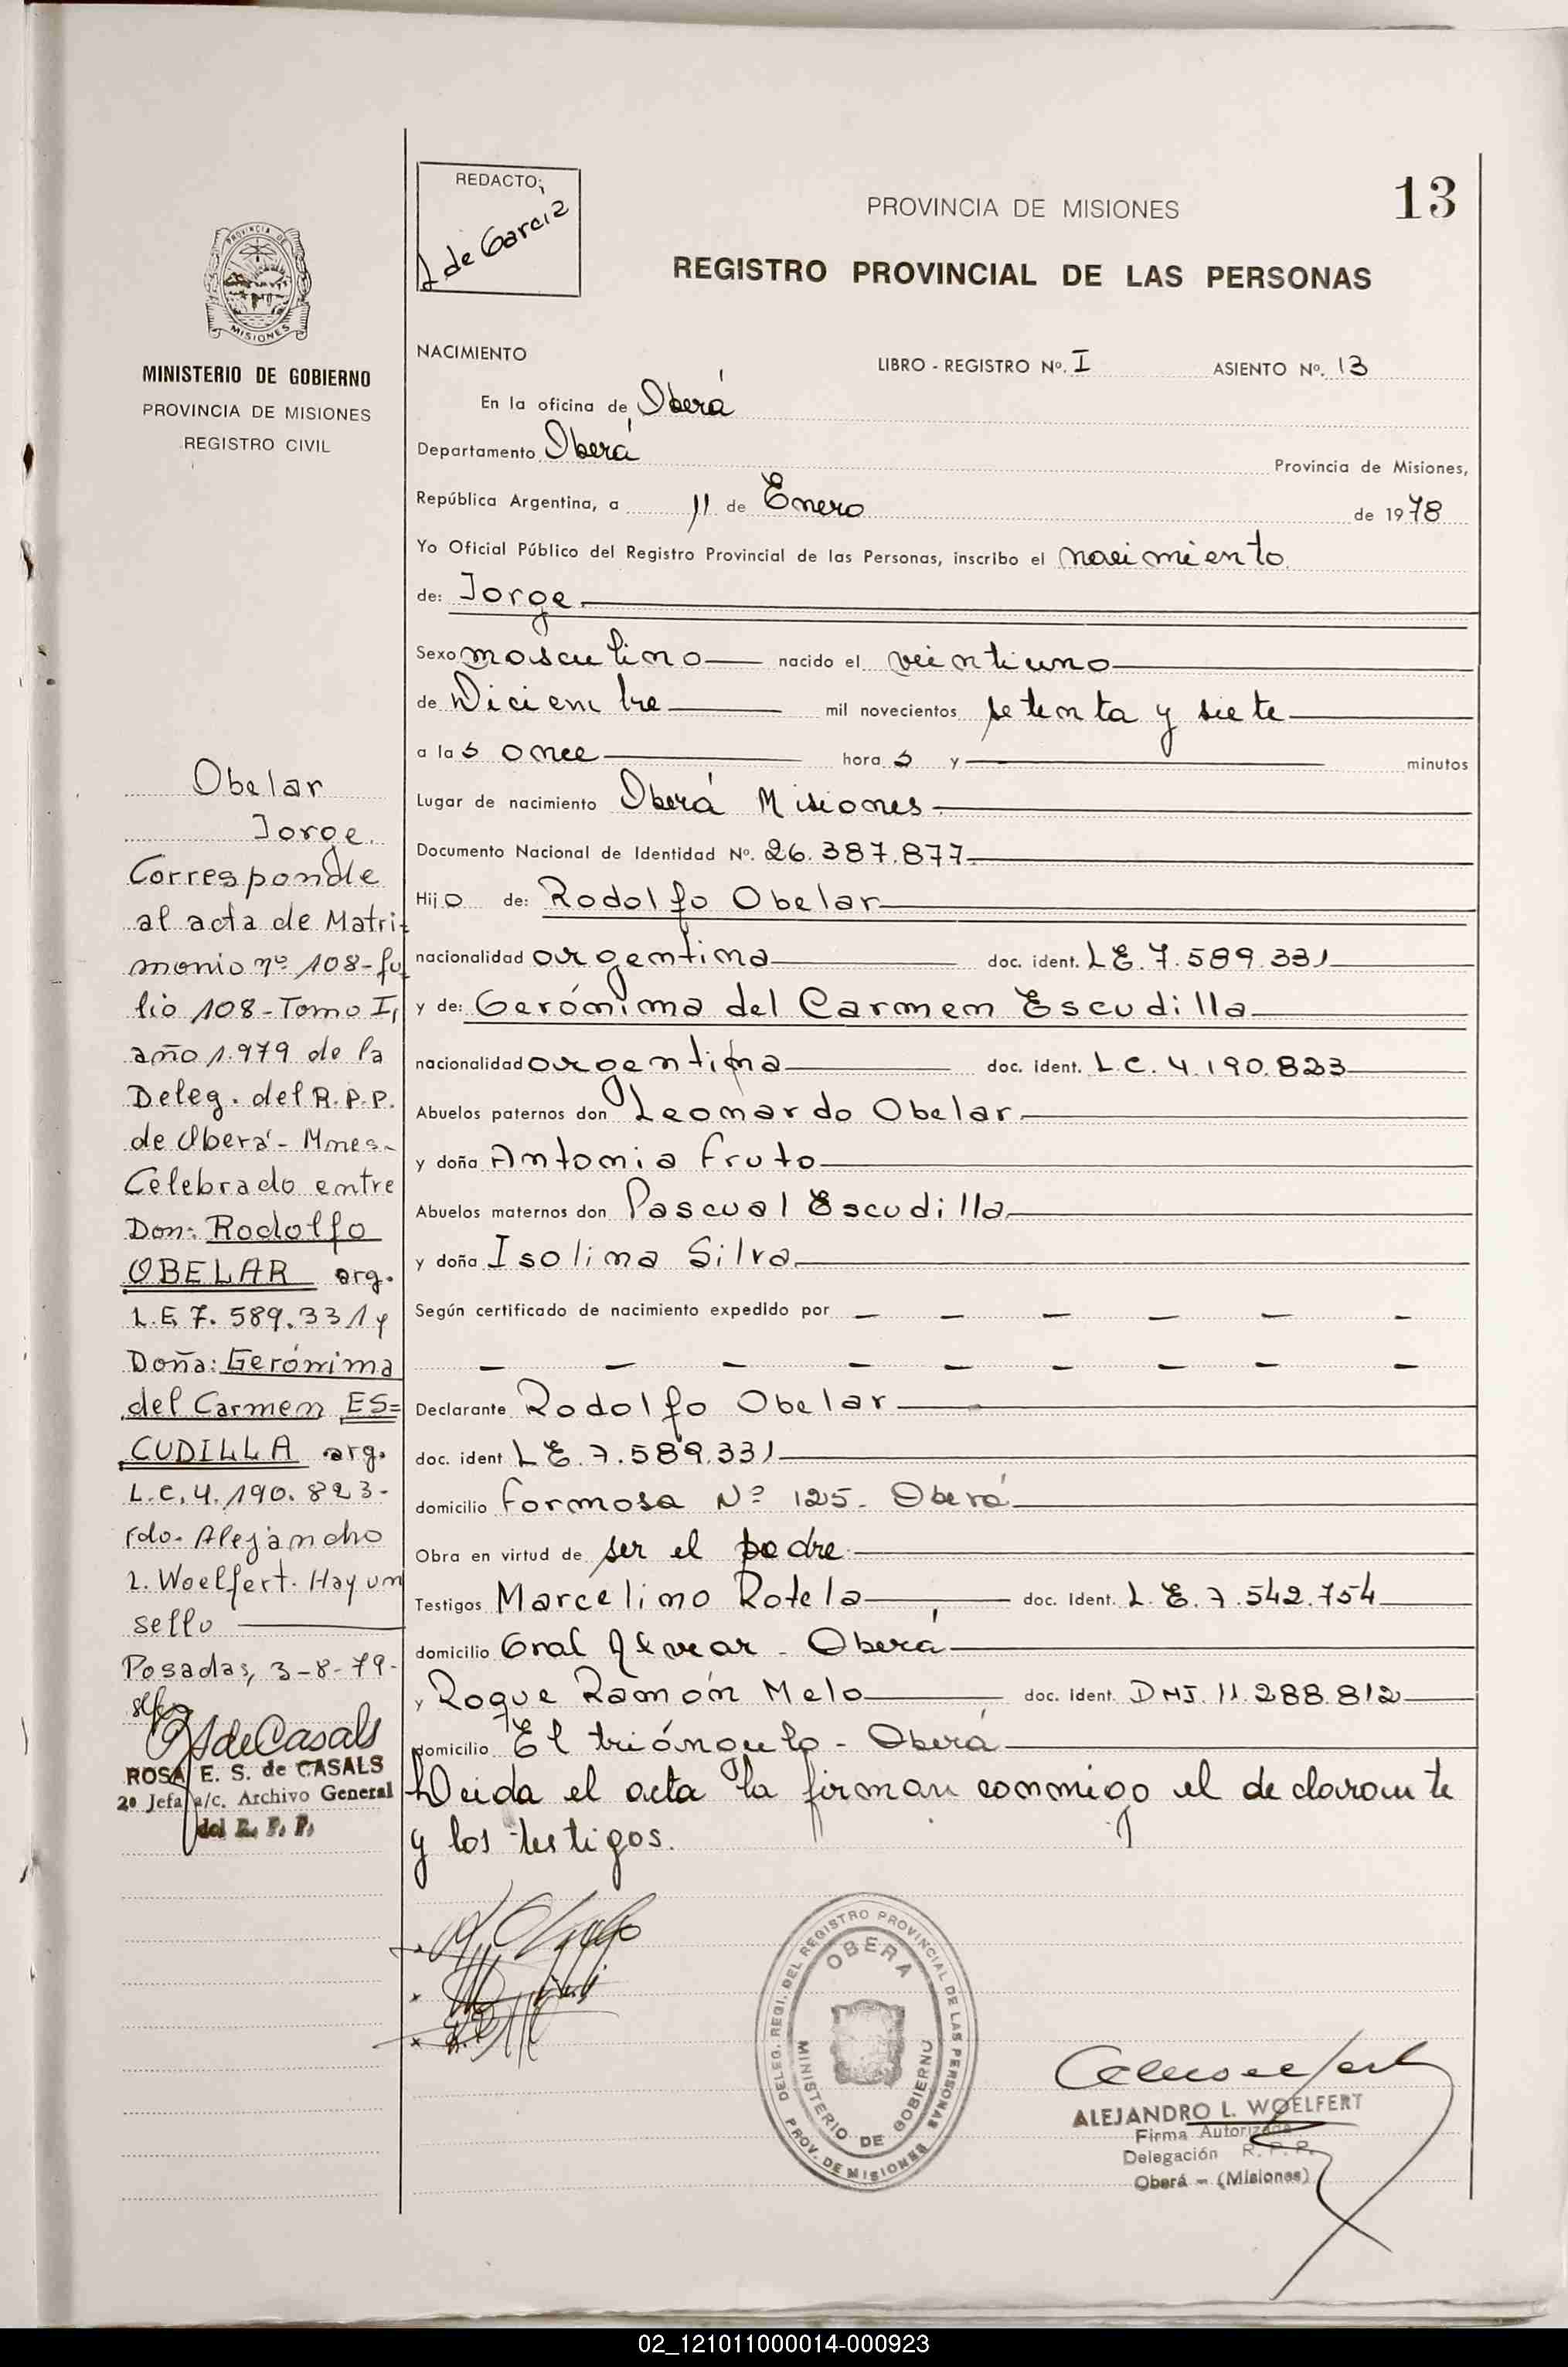 13
REDACTO;
L de Garcia
PROVINCIA DE MISIONES
REGISTRO PROVINCIAL DE LAS PERSONAS
PROVINCIA DE
MISIONES
MINISTERIO DE GOBIERNO
PROVINCIA DE MISIONES
REGISTRO CIVIL
NACIMIENTO LIBRO - REGISTRO Nº. I ASIENTO Nº. 13
En la oficina de Oberá
Departamento Oberá Provincia de Misiones,
República Argentina, a 11 de Enero de 1978
Yo Oficial Público del Registro Provincial de las Personas, inscribo el nacimiento
de: Jorge
Sexo masculino nacido el veintiuno
de Diciembre mil novecientos setenta y siete
a las once horas y minutos
Lugar de nacimiento Oberá Misiones
Documento Nacional de Identidad Nº. 26.387.877
Hijo de: Rodolfo Obelar
nacionalidad argentina doc. ident. LE. 7.589.331
y de: Gerónima del Carmen Escudilla
nacionalidad argentina doc. ident. L.C. 4.190.823
Abuelos paternos don Leonardo Obelar
y doña Antonia Fruto
Abuelos maternos don Pascual Escudilla
y doña Isolina Silva
Según certificado de nacimiento expedido por
Declarante Rodolfo Obelar
doc. ident LE. 7.589.331
domicilio Formosa Nº 125 - Oberá
Obra en virtud de ser el padre
Testigos Marcelino Rotela doc. Ident. L.E. 7.542.754
domicilio Gral Alvear - Oberá
y Roque Ramón Melo doc. Ident. DNI. 11.288.812
domicilio El triángulo - Oberá
Leida el acta la firman conmigo el declarante
y los testigos.
Obelar
Jorge.
Corresponde
al acta de Matri-
monio nº 108-fo
lio 108-Tomo I,
año 1.979 de la
Deleg. del R.P.P.
de Oberá - Mnes-
Celebrado entre
Don: Rodolfo
OBELAR arg.
L.E 7.589.331 y
Doña: Gerónima
del Carmen ES=
CUDILLA arg.
L.C. 4.190.823-
fdo. Alejandro
L. Woelfert. Hay un
sello
Posadas, 3-8-79-
de Casals
ROSA E. S. de CASALS
2º Jefa a/c. Archivo General
del R. P. P.
DELEG. REGI. DEL REGISTRO PROVINCIAL DE LAS PERSONAS
OBERA
MINISTERIO DE GOBIERNO
PROV. DE MISIONES
ALEJANDRO L. WOELFERT
Firma Autorizada
Delegación R. P. P.
Oberá - (Misiones)
02_121011000014-000923